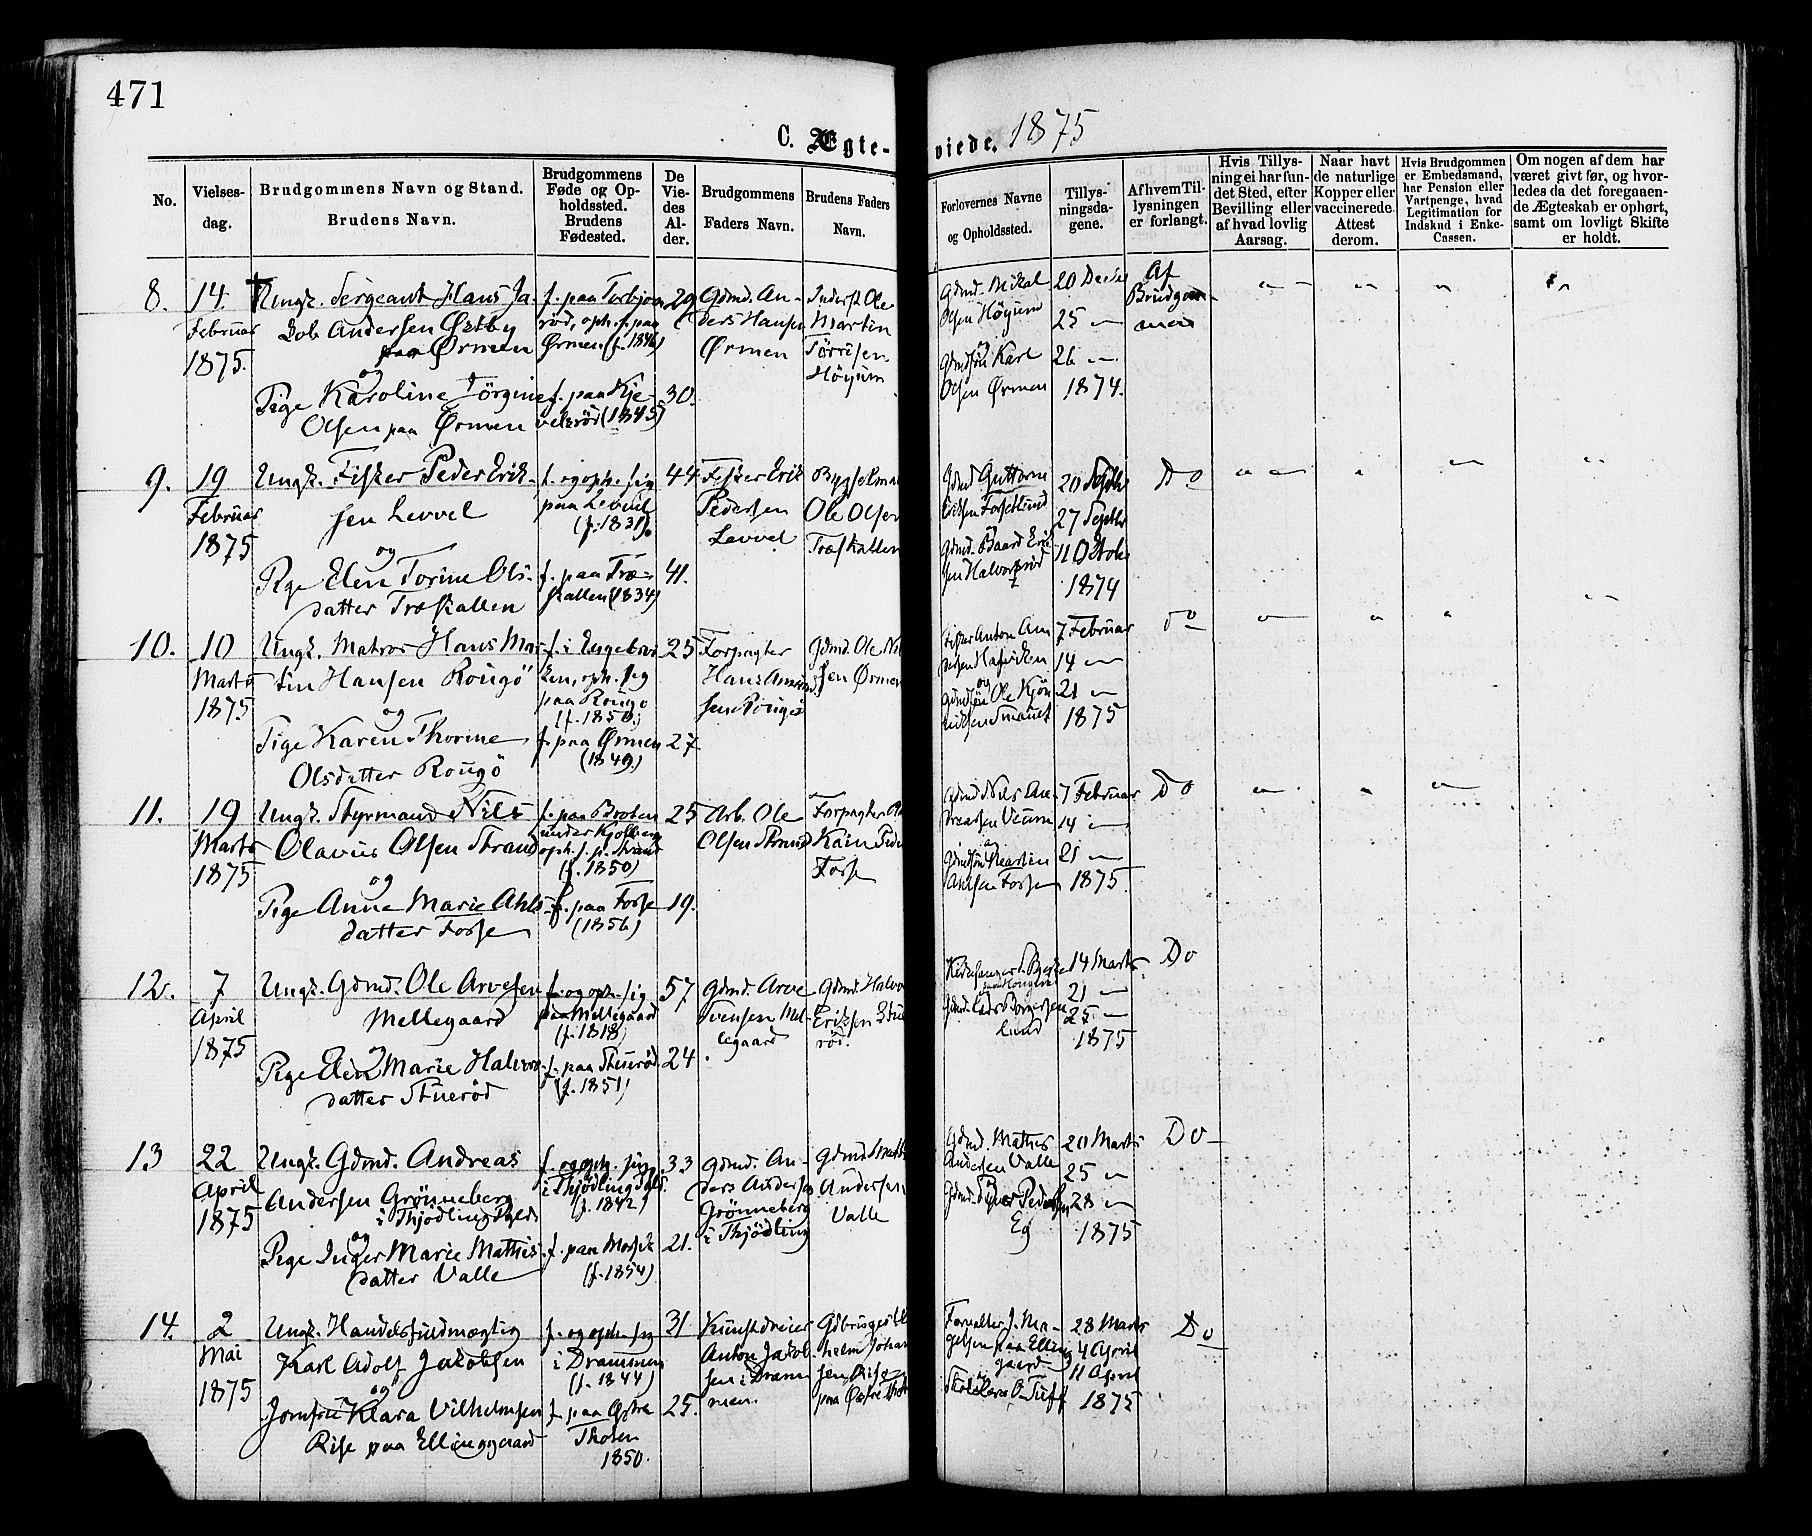 471
C. Ægte-viede. 1875
No.
Vielses-dag.
Brudgommens Navn og Stand.
Brudens Navn.
Brudgommens Føde og Opholdssted.
Brudens Fødested.
De Viedes Alder.
Brudgommens Faders Navn.
Brudens Faders Navn.
Forlovernes Navne og Opholdssted.
Tillysningsdagene.
Af hvem Tillysningen er forlangt.
Hvis Tillysning ei har fundet Sted, efter Bevilling eller af hvad lovlig Aarsag.
Naar havt de naturlige Kopper eller vaccinerede. Attest derom.
Hvis Brudgommen er Embedsmand, har Pension eller Vartpenge, hvad Legitimation for Indskud i Enke-Cassen.
Om nogen af dem har været givt før, og hvorledes da det foregaaende Ægteskab er ophørt, samt om lovligt Skifte er holdt.
8.
14.
Februar
1875.
Ungk. Sergeant Hans Ja-
kob Andersen Østby
paa Ørmen
og
Pige Karoline Jörgine
Olsen paa Ørmen
f. paa Torbjørn-
röd, oph. s. paa
Ørmen (f. 1846)
f. paa Kje-
velsröd (1845)
29
30.
Gdmd. An-
ders Hansen
Ørmen
Inderst Ole
Martin
Törrisen
Höyum
Gdmd. Mikal
Olsen Höyum
og
Gdmdsön Karl
Olsen Ørmen
20 Decbr
25 —
26 —
1874.
Af
Brudgom-
men
9.
19
Februar
1875
Ungk. Fisker Peder Erik-
sen Levvel
og
Pige Elen Torine Ols-
datter Træskallen
f. og oph. sig
paa Levvel
(f. 1831).
f. paa Træ-
skallen (1834)
44
41.
Fisker Erik
Pedersen
Levvel
Bygselmand
Ole Olsen
Træskallen
Gdmd. Guttorm
Eriksen Forsetlund
Gdmd. Baard Erik
sen Halvorsröd
20 Septbr
27 Septbr
11 Octobr
1874
Do
10.
10
Marts
1875
Ungk. Matros Hans Mar-
tin Hansen Rougö
og
Pige Karen Thorine
Olsdatter Rougö
f. i Engebak
ken, oph. sig
paa Rougö
(f. 1850.)
f. paa Ørmen
(1849.)
25
27
Forpagter
Hans Amund
sen Rougö
Gdmd. Ole Nil
sen Ørmen
Fisker Anton An
dersen Hasviken
og
7 Februar
14 —
21 —
1875
Do
11.
19
Marts
1875
Ungk. Styrmand Nils
Olavus Olsen Strand
og
Pige Anne Marie Ahls-
datter Fosse
f. paa Broten
under Kjölberg
oph. s. p. Strand
(f. 1850)
f. paa Fosse
(1856)
25
19.
Arb. Ole
Olsen Strand
Forpagter
Fosse
Gdmd Nils An-
dreasen Veum
7 Februar
14 —
21 —
1875.
Do
12.
7
April
1875
Ungk. Gdmd. Ole Arvesen
Mellegaard
og
Pige Elen Marie Halvors-
datter Stueröd
f. og oph. sig
paa Mellegaard
(f. 1818)
f. paa Stueröd
(f. 1851)
57
24
Gdmd. Arve
Svensen Mel-
legaard
Gdmd. Halvor
Eriksen Stue
röd.
Gdmd. Lars Borgersen
Lund
14 Marts
21 —
25 —
1875
Do
13
22
April
1875
Ungk. Gdmd. Andreas
Andersen Grönneberg
i Thjödling Pgld.
og
Pige Inger Marie Mathis-
datter Valle
f. og oph. sig
i Thjödling Pgld.
(f. 1842)
f. paa
(f. 1854)
33
21.
Gdmd. An-
ders Andersen
Grönneberg
i Thjödling
Gdmd Math
Andersen
Valle
Gdmd. Mathis
Andersen Valle
og
Gdmd. Iver Pedersen
Eg
20 Marts
25 —
28 —
1875
Do
14.
2
Mai
1875
Ungk. Handelsfuldmægtig
Karl Adolf Jakobsen
og
Jomfru Klara Vilhelmsen
Rise paa Ellinggaard
f. og oph. sig
i Drammen
(f. 1844)
f. paa Østre
Thoten
1850.
31
25.
Kunstdreier
Anton Jakob-
sen i Dram
men.
Gdbruger Vil
helm Johan
sen Rise
paa Østre Thot
Forvalter J. Ma-
gelsen paa Elling
gaard
28 Marts
4 April
11 April
1875
Do